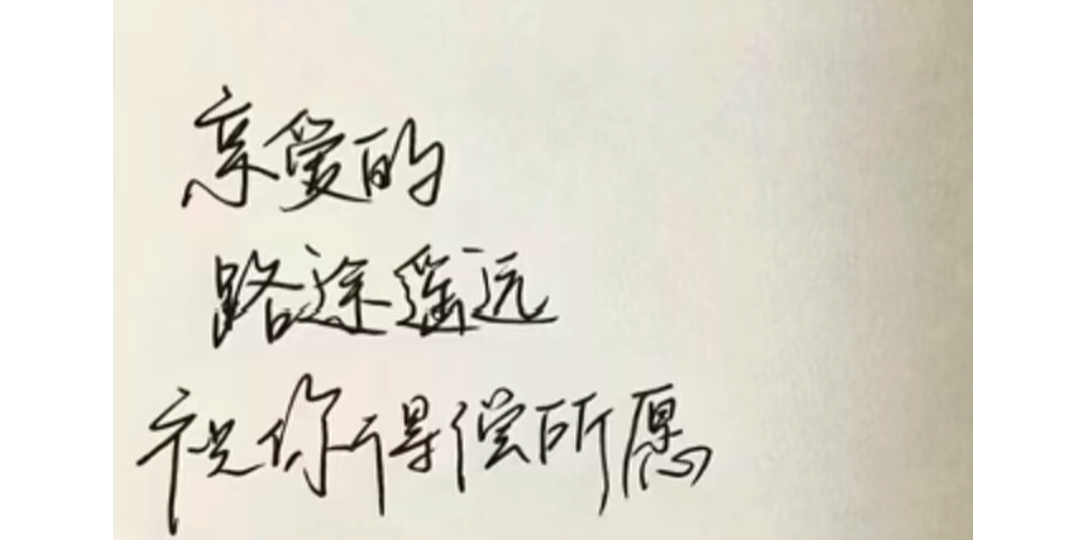 亲爱的
路途遥远
祝你得偿所愿